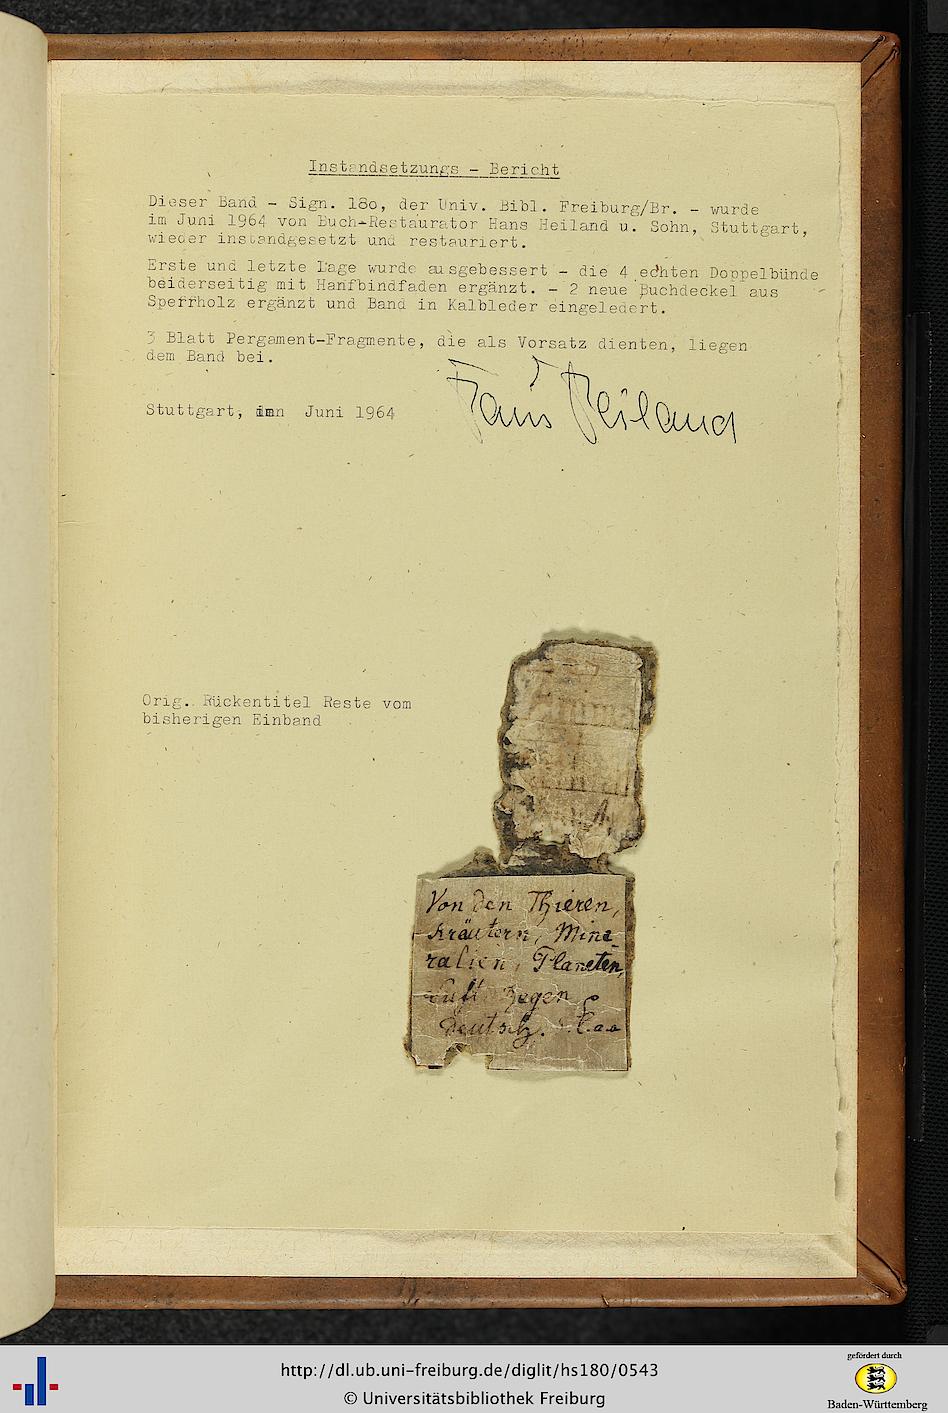 Instandsetzungs - Bericht
Dieser Band - Sign. 18o, der Univ. Bibl. Freiburg/Br. - wurde
im Juni 1964 von Buch-Restaurator Hans Heiland u. Sohn, Stuttgart,
wieder instandgesetzt und restauriert.
Erste und letzte Lage wurde ausgebessert - die 4 echten Doppelbünde
beiderseitig mit Hanfbindfaden ergänzt. - 2 neue Buchdeckel aus
Sperrholz ergänzt und Band in Kalbleder eingeledert.
3 Blatt Pergament-Fragmente, die als Vorsatz dienten, liegen
dem Band bei.
Stuttgart, im Juni 1964
Hans Heiland
Orig. Rückentitel Reste vom
bisherigen Einband
Von den Thieren,
Kräutern, Mine
ralien, Planeten,
deutsch.
http://dl.ub.uni-freiburg.de/diglit/hs180/0543
© Universitätsbibliothek Freiburg
gefördert durch
Baden-Württemberg